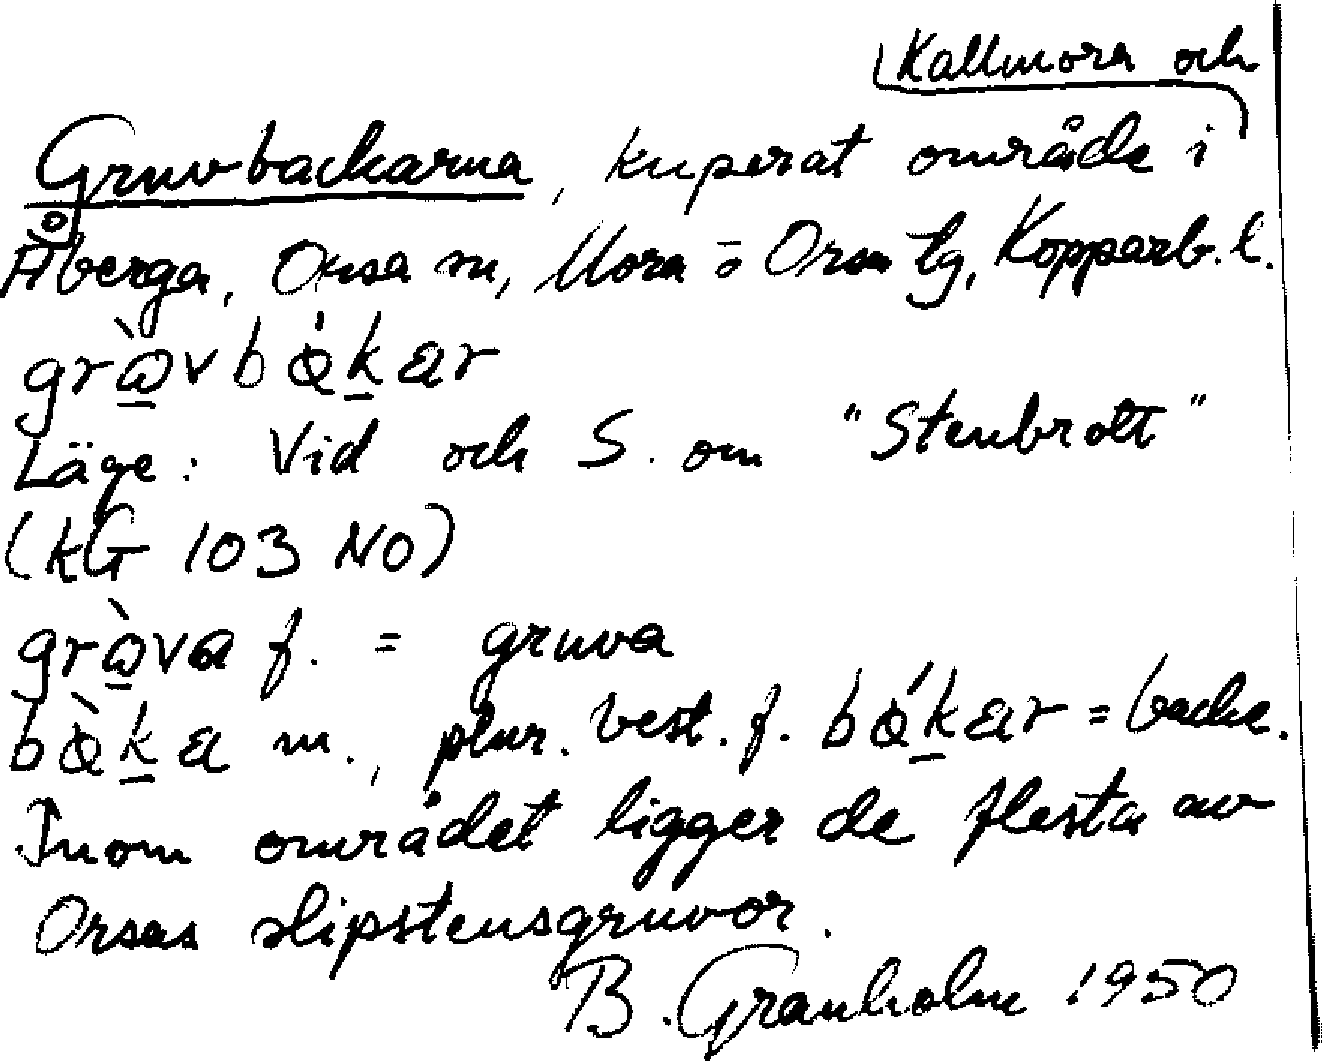 Kallmora och
Gruvbackarna, kuperat område i
Åberga, Orsa sn, Mora o Orsa tg, Kopparb. l.
grὰvbάkar
Läge: Vid och S. om "Stenbrott"
(kG 103 NO)
grὰva f. = gruva
bὰka m., plur. best. f. bάkar = backe.
Inom området ligger de flesta av
Orsas slipstensgruvor.
B. Granholm 1950